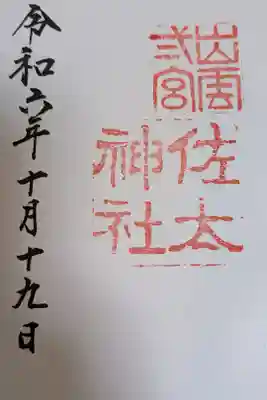 出雲
弎宮
佐太
神社
令和六年十月十九日